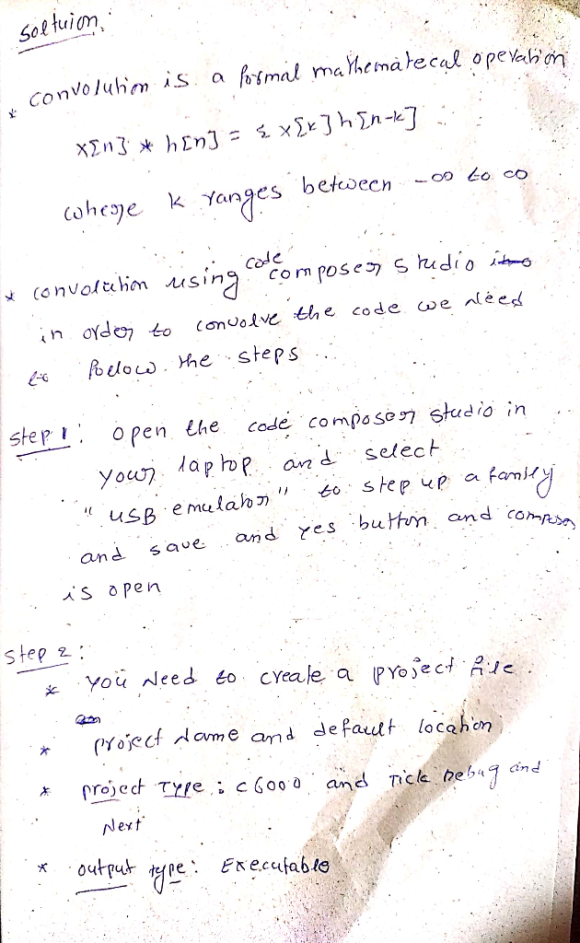 Soltuion.
* convolution is a formal mathematecal operation
x[n] * h[n] = Σ x[k] h[n-k]
where k ranges between -∞ to ∞
* convolution using code composer studio
in order to convolve the code we Need
to follow the steps
step 1: open the code composer studio in
your laptop and select
"USB emulator" to step up a family
and save and yes button and composer
is open
step 2:
* you Need to create a project file.
* project Name and default location
* project Type: C6000 and Tick Debug and
Next
* output type: Executable